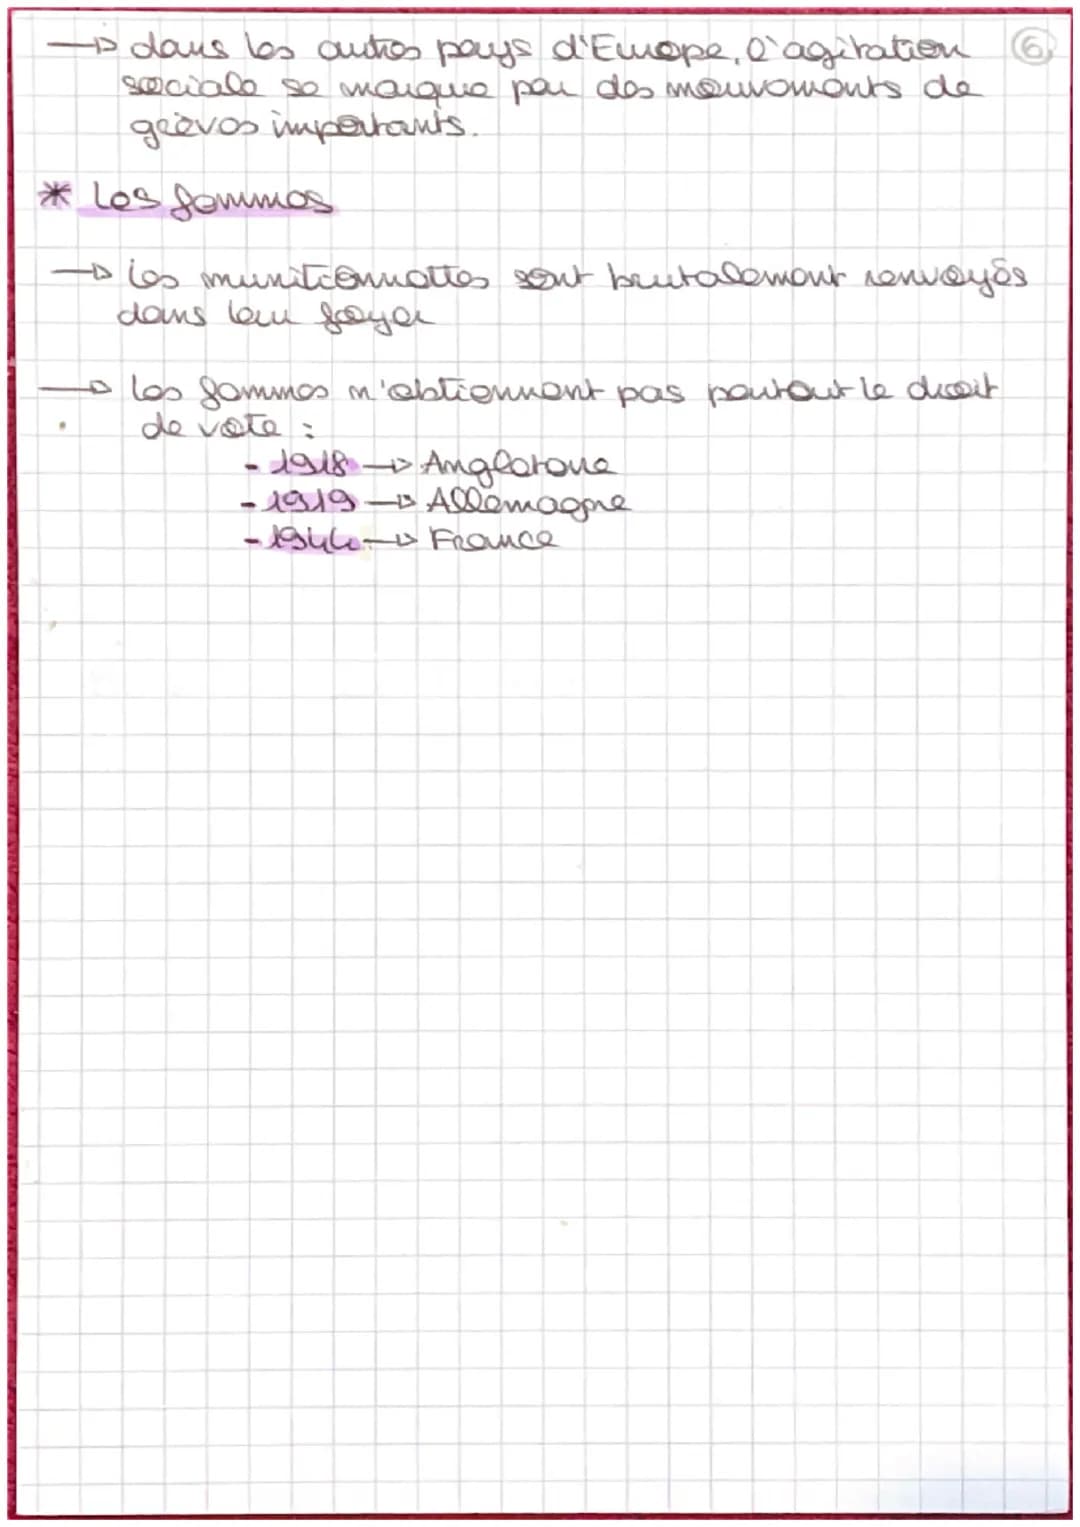 → dans les autres pays d'Europe, l'agitation ⑥
sociale se marque par des mouvements de
grèves importants.
* Les femmes
→ les munitionnettes sont brutalement renvoyés
dans leur foyer
→ les femmes n'obtiennent pas partout le droit
de vote :
- 1918 → Angleterre
- 1919 → Allemagne
- 1944 → France